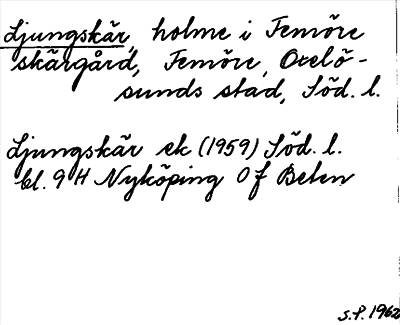 Ljungskär, holme i Femöre
skärgård, Femöre, Oxelö-
sunds stad, Söd. l.
Ljungskär ek (1959) Söd. l.
bl. 9 H Nyköping O f Beten
S.P. 1962